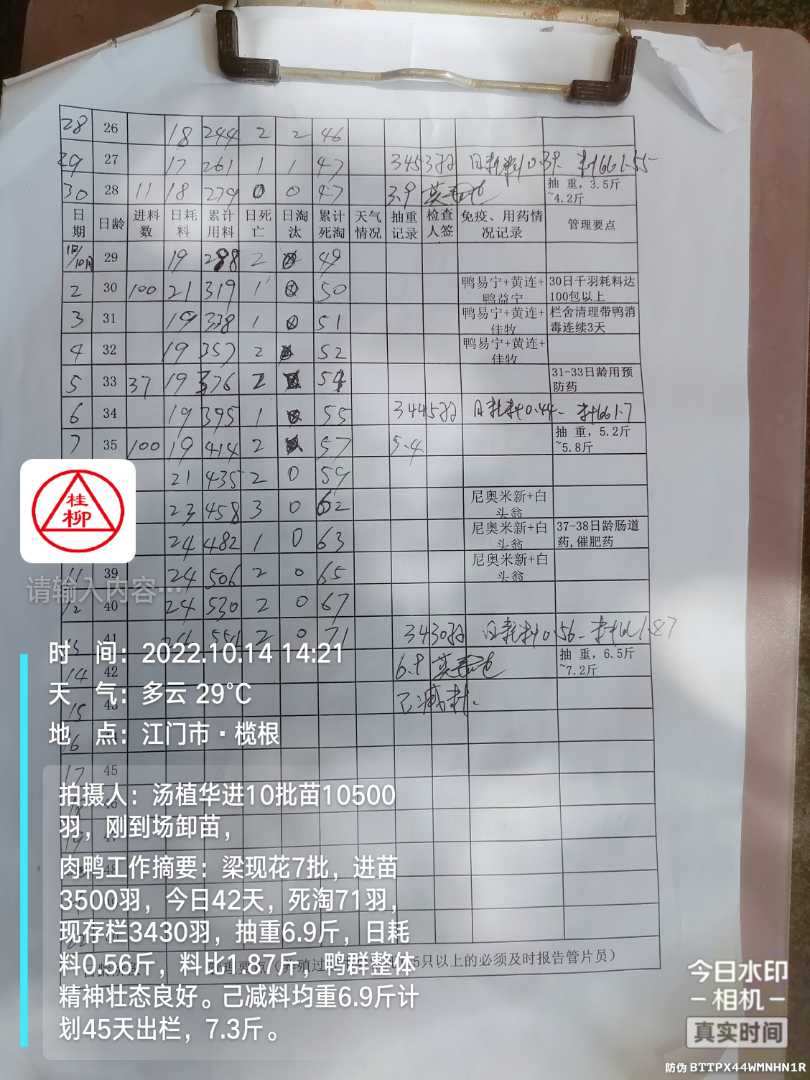 28 26 18 244 2 2 46
29 27 17 261 1 1 47 3453羽 日耗料0.39 料比1.55
30 28 11 18 279 0 0 47 3.9 抽重,3.5斤~4.2斤
日期 日龄 进料数 日耗料 累计用料 日死亡 日淘汰 累计死淘 天气情况 抽重记录 检查人签 免疫、用药情况记录 管理要点
29 19 298 2 49
2 30 100 21 319 1 50 鸭易宁+黄连+鸭益宁 30日千羽耗料达100包以上
3 31 19 338 1 0 51 鸭易宁+黄连+佳牧 栏舍清理带鸭消毒连续3天
4 32 19 357 2 52 鸭易宁+黄连+佳牧
5 33 37 19 376 2 54 31-33日龄用预防药
6 34 19 395 1 55 3445羽 日耗料0.44 料比1.7
7 35 100 19 414 2 57 5.4 抽重,5.2斤~5.8斤
21 435 2 0 59
23 458 3 0 62 尼奥米新+白头翁
24 482 1 0 63 尼奥米新+白头翁 37-38日龄肠道药,催肥药
11 39 24 506 2 0 65 尼奥米新+白头翁
12 40 24 530 2 0 67
41 2 0 71 3430羽 日耗料0.56 料比1.87
14 42 6.9 抽重,6.5斤~7.2斤
15 已减料.
16
17 45
5只以上的必须及时报告管片员)
桂柳
请输入内容…
时 间:2022.10.14 14:21
天 气:多云 29℃
地 点:江门市·榄根
拍摄人:汤植华进10批苗10500
羽,刚到场卸苗,
肉鸭工作摘要:梁现花7批,进苗
3500羽,今日42天,死淘71羽,
现存栏3430羽,抽重6.9斤,日耗
料0.56斤,料比1.87斤。鸭群整体
精神壮态良好。己减料均重6.9斤计
划45天出栏,7.3斤。
今日水印
-相机-
真实时间
防伪 BTTPX44WMNHN1R